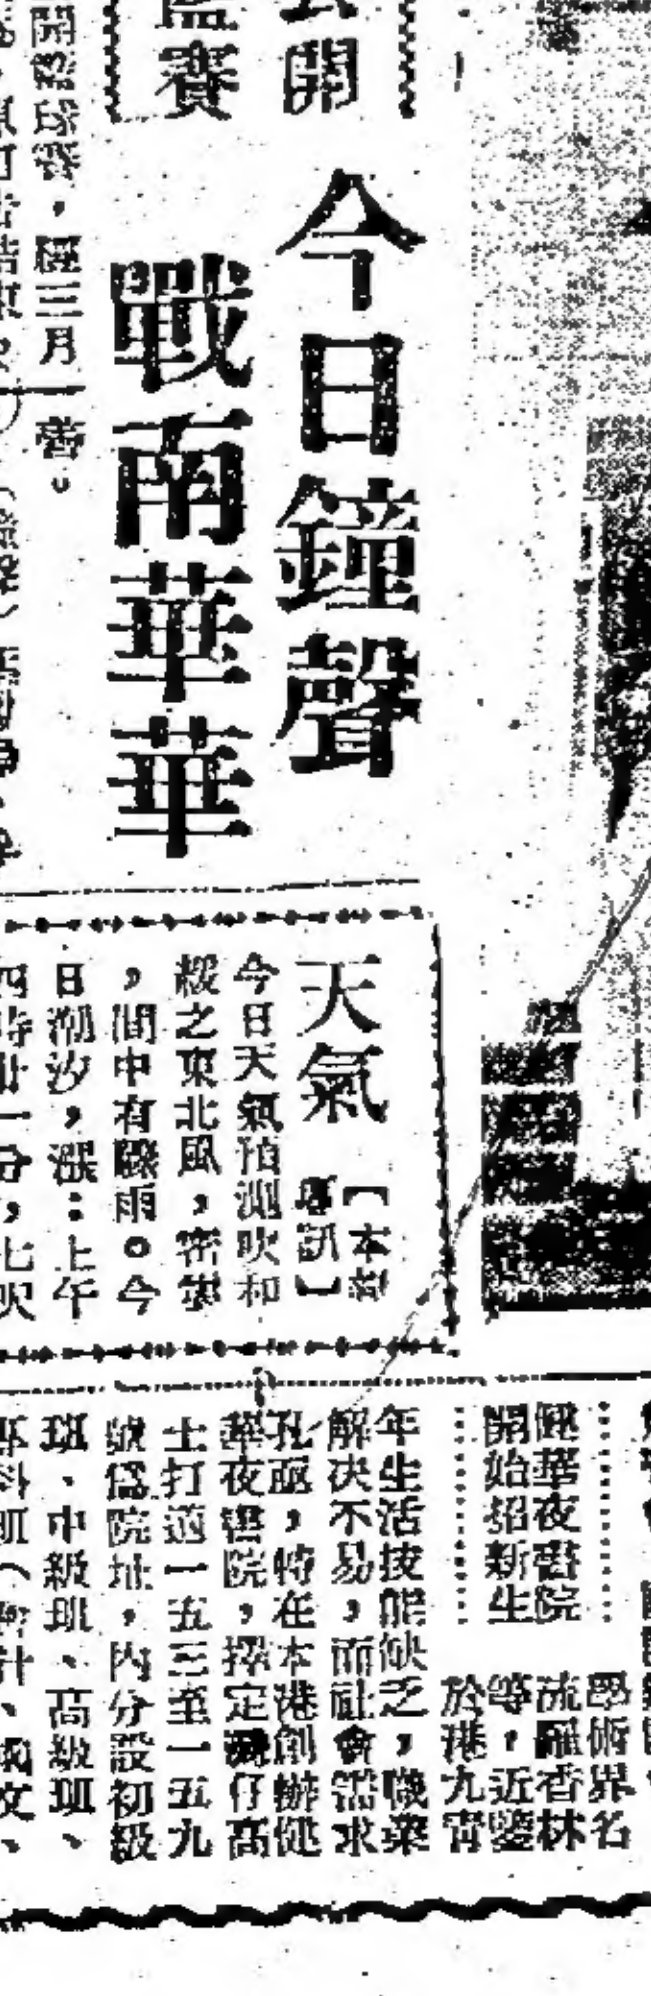 公開
籃賽
今日鐘聲
戰南華華
開籃球賽，經三月
善。
天氣
【本報
專訊】
今日天氣預測吹和
緩之東北風，密雲
，間中有驟雨。今
日潮汐，漲：上午
四時廿一分，七呎
健華夜書院
開始招新生
學術界名
流羅香林
等，近鑒
於港九靑
年生活技能缺乏，職業
解决不易，而社會需求
孔亟，特在本港創辦健
華夜書院，擇定灣仔高
士打道一五三至一五九
號爲院址，內分設初級
班、中級班、高級班、
專科班（會計、國文、